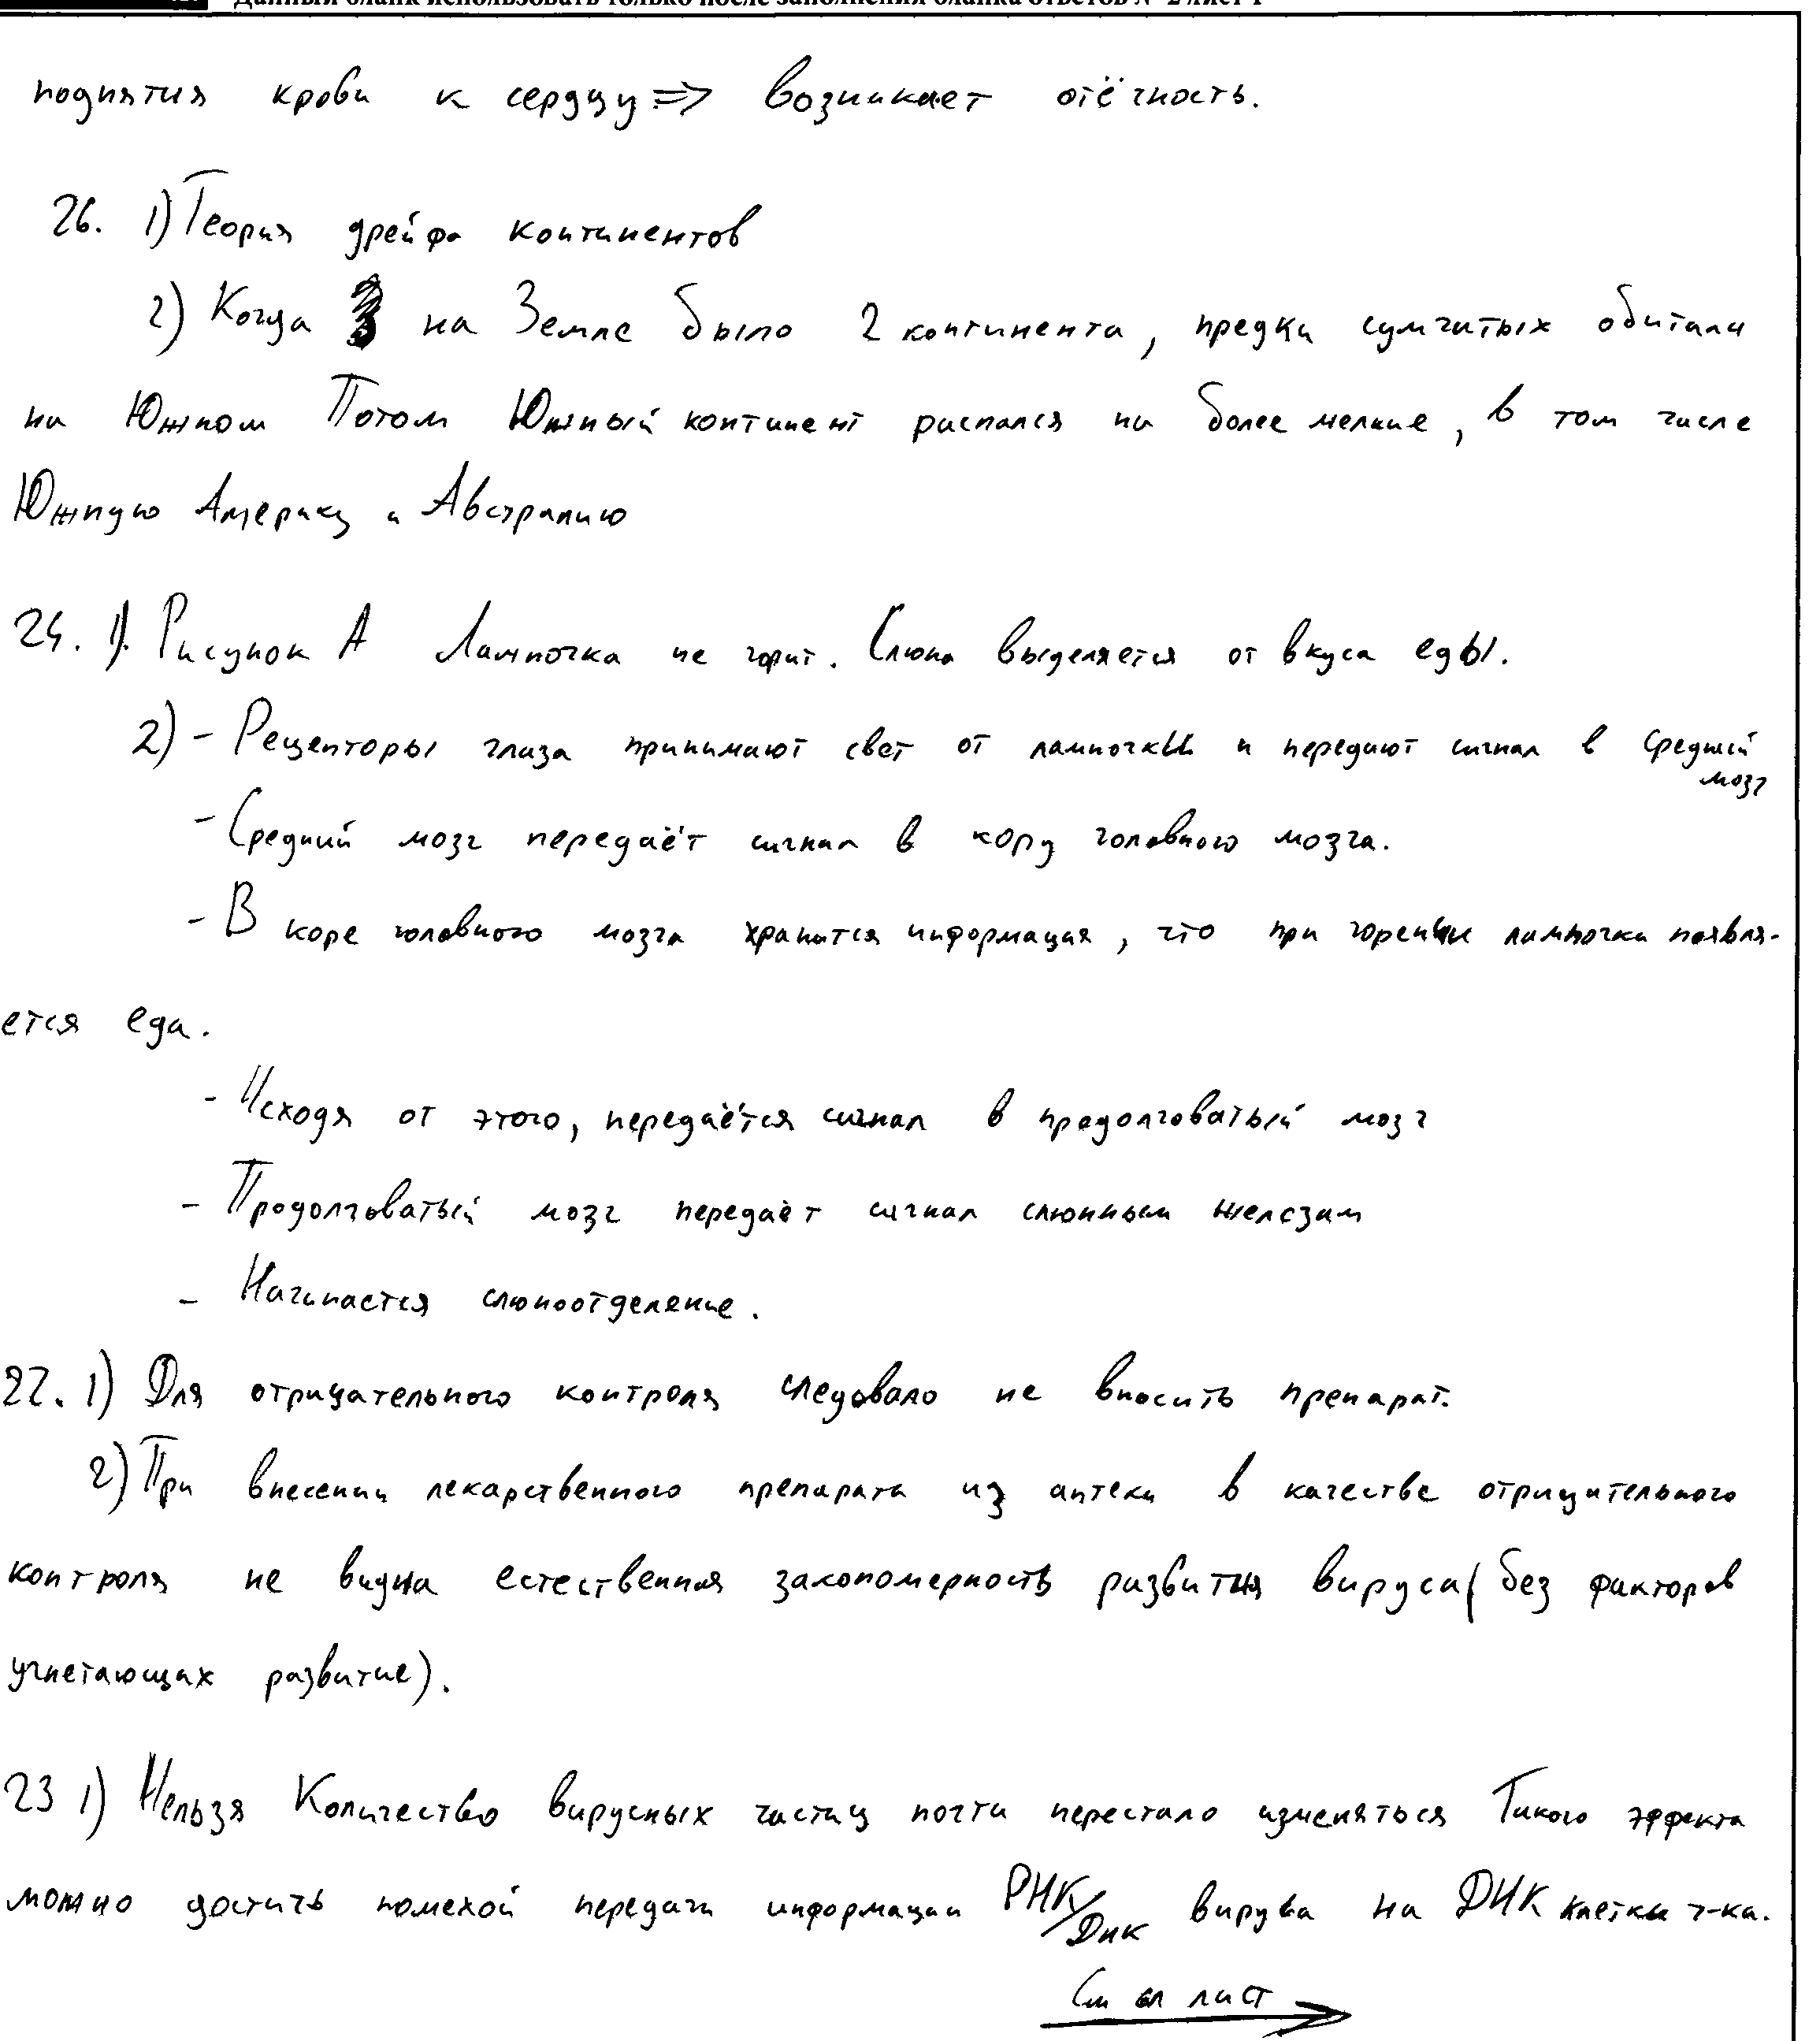 Данный бланк использовать только после заполнения бланка ответов № 2 лист 1
поднятия крови к сердцу => возникает отёчность.
26. 1) Теория дрейфа континентов
2) Когда на Земле было 2 континента, предки сумчатых обитали
на Южном Потом Южный континент распался на более мелкие, в том числе
Южную Америку и Австралию
24. 1). Рисунок А Лампочка не горит. Слюна выделяется от вкуса еды.
2) - Рецепторы глаза принимают свет от лампочки и передают сигнал в средний
мозг
- Средний мозг передаёт сигнал в кору головного мозга.
- В коре головного мозга хранится информация, что при горении лампочки появля-
ется еда.
- Исходя от этого, передаётся сигнал в продолговатый мозг
- Продолговатый мозг передаёт сигнал слюнным железам
- Начинается слюноотделение.
22. 1) Для отрицательного контроля следовало не вносить препарат.
2) При внесении лекарственного препарата из аптеки в качестве отрицательного
контроля не видна естественная закономерность развития вируса (без факторов
угнетающих развитие).
23 1) Нельзя Количество вирусных частиц почти перестало изменяться Такого эффекта
можно достичь помехой передачи информации РНК/ДНК вируса на ДНК клетки ч-ка.
См сл лист